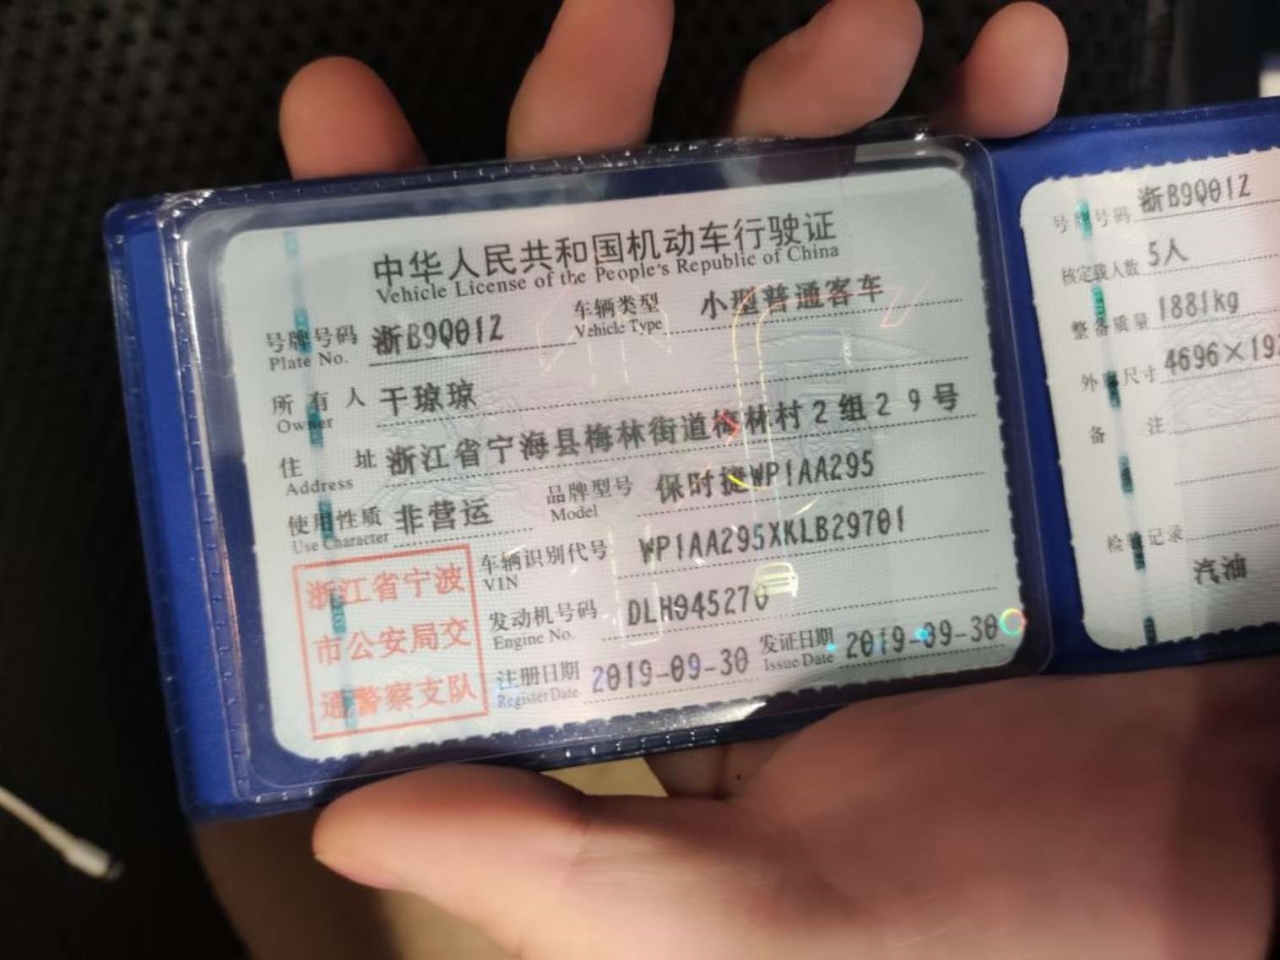 中华人民共和国机动车行驶证
Vehicle License of the People's Republic of China
号牌号码 浙B9Q01Z 车辆类型 小型普通客车
Plate No. Vehicle Type
所有人 干琼琼
Owner
住址 浙江省宁海县梅林街道梅林村2组29号
Address
使用性质 非营运 品牌型号 保时捷WP1AA295
Use Character Model
车辆识别代号 WP1AA295XKLB29701
VIN
发动机号码 DLH945270
Engine No.
注册日期 2019-09-30 发证日期 2019-09-30
Register Date Issue Date
浙江省宁波
市公安局交
通警察支队
号牌号码 浙B9Q01Z
核定载人数 5人
整备质量 1881kg
外廓尺寸 4696×192
备注
检验记录
汽油